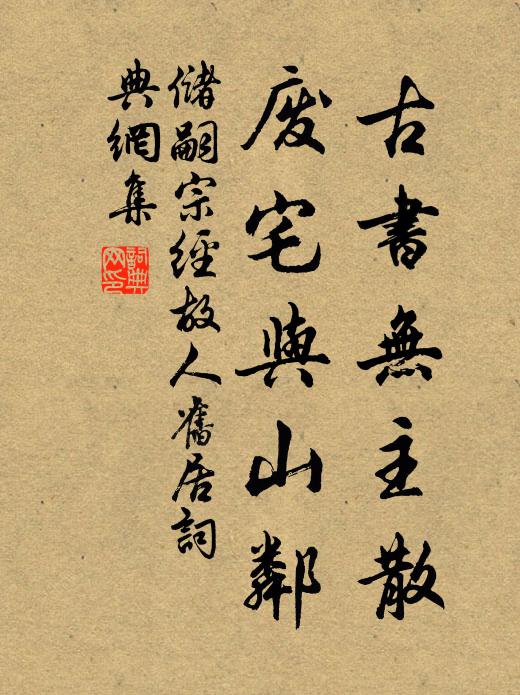 古書無主散
廢宅與山鄰
儲嗣宗經故人舊居詞
典網集
詞典網印